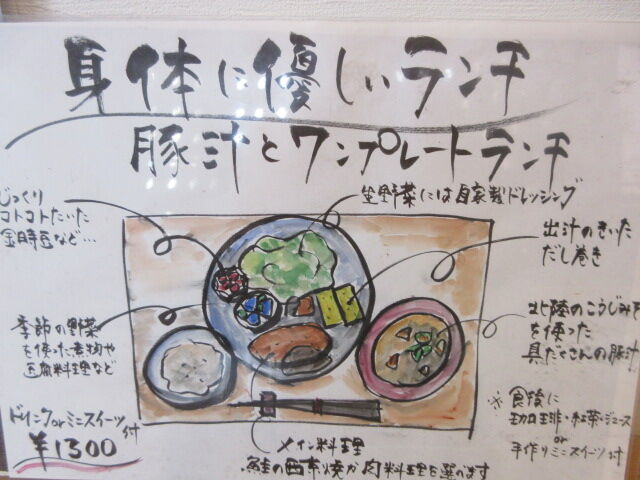 身体に優しいランチ
豚汁とワンプレートランチ
じっくり
コトコトたいた
金時豆など…
生野菜には自家製ドレッシング
出汁のきいた
だし巻き
季節の野菜
を使った煮物や
豆腐料理など
北陸のこうじみそ
を使った
具だくさんの豚汁
ドリンクorミニスイーツ付
¥1300
メイン料理
鮭の西京焼か肉料理を選べます
※食後に
珈琲・紅茶・ジュース
or
手作りミニスイーツ付